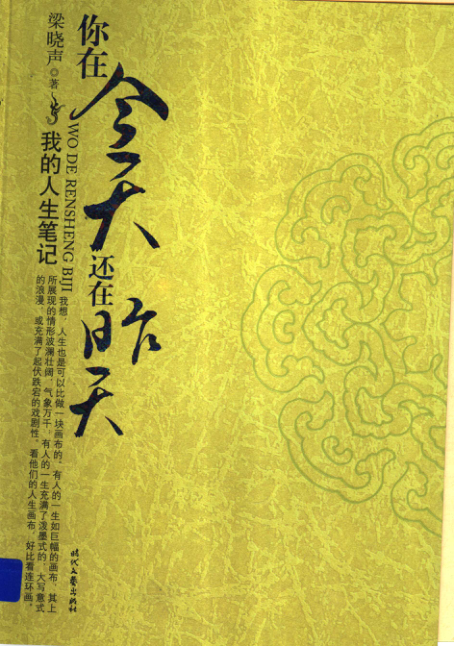 你在今天还在昨天
梁晓声◎著
我的人生笔记
WO DE RENSHENG BIJI
我想，人生也是可以比做一块画布的。有人的一生如巨幅的画布，其上
所展现的情形波澜壮阔，气象万千，有人的一生充满了泼墨式的、大写意式
的浪漫，或充满了起伏跌宕的戏剧性。看他们的人生画布，好比看连环画。
时代文艺出版社